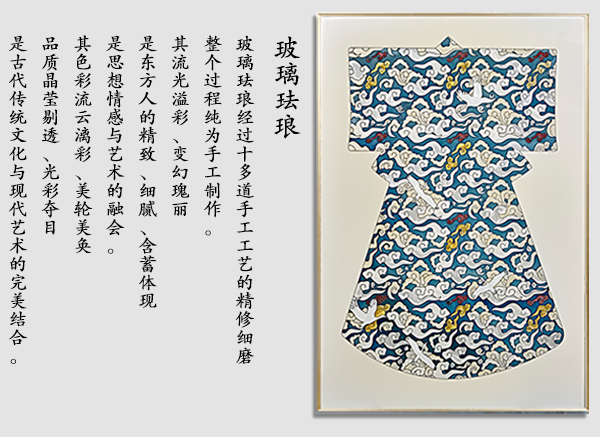 玻璃珐琅
玻璃珐琅经过十多道手工工艺的精修细磨
整个过程纯为手工制作。
其流光溢彩、变幻瑰丽
是东方人的精致、细腻、含蓄体现
是思想情感与艺术的融会。
其色彩流云漓彩、美轮美奂
品质晶莹剔透、光彩夺目
是古代传统文化与现代艺术的完美结合。